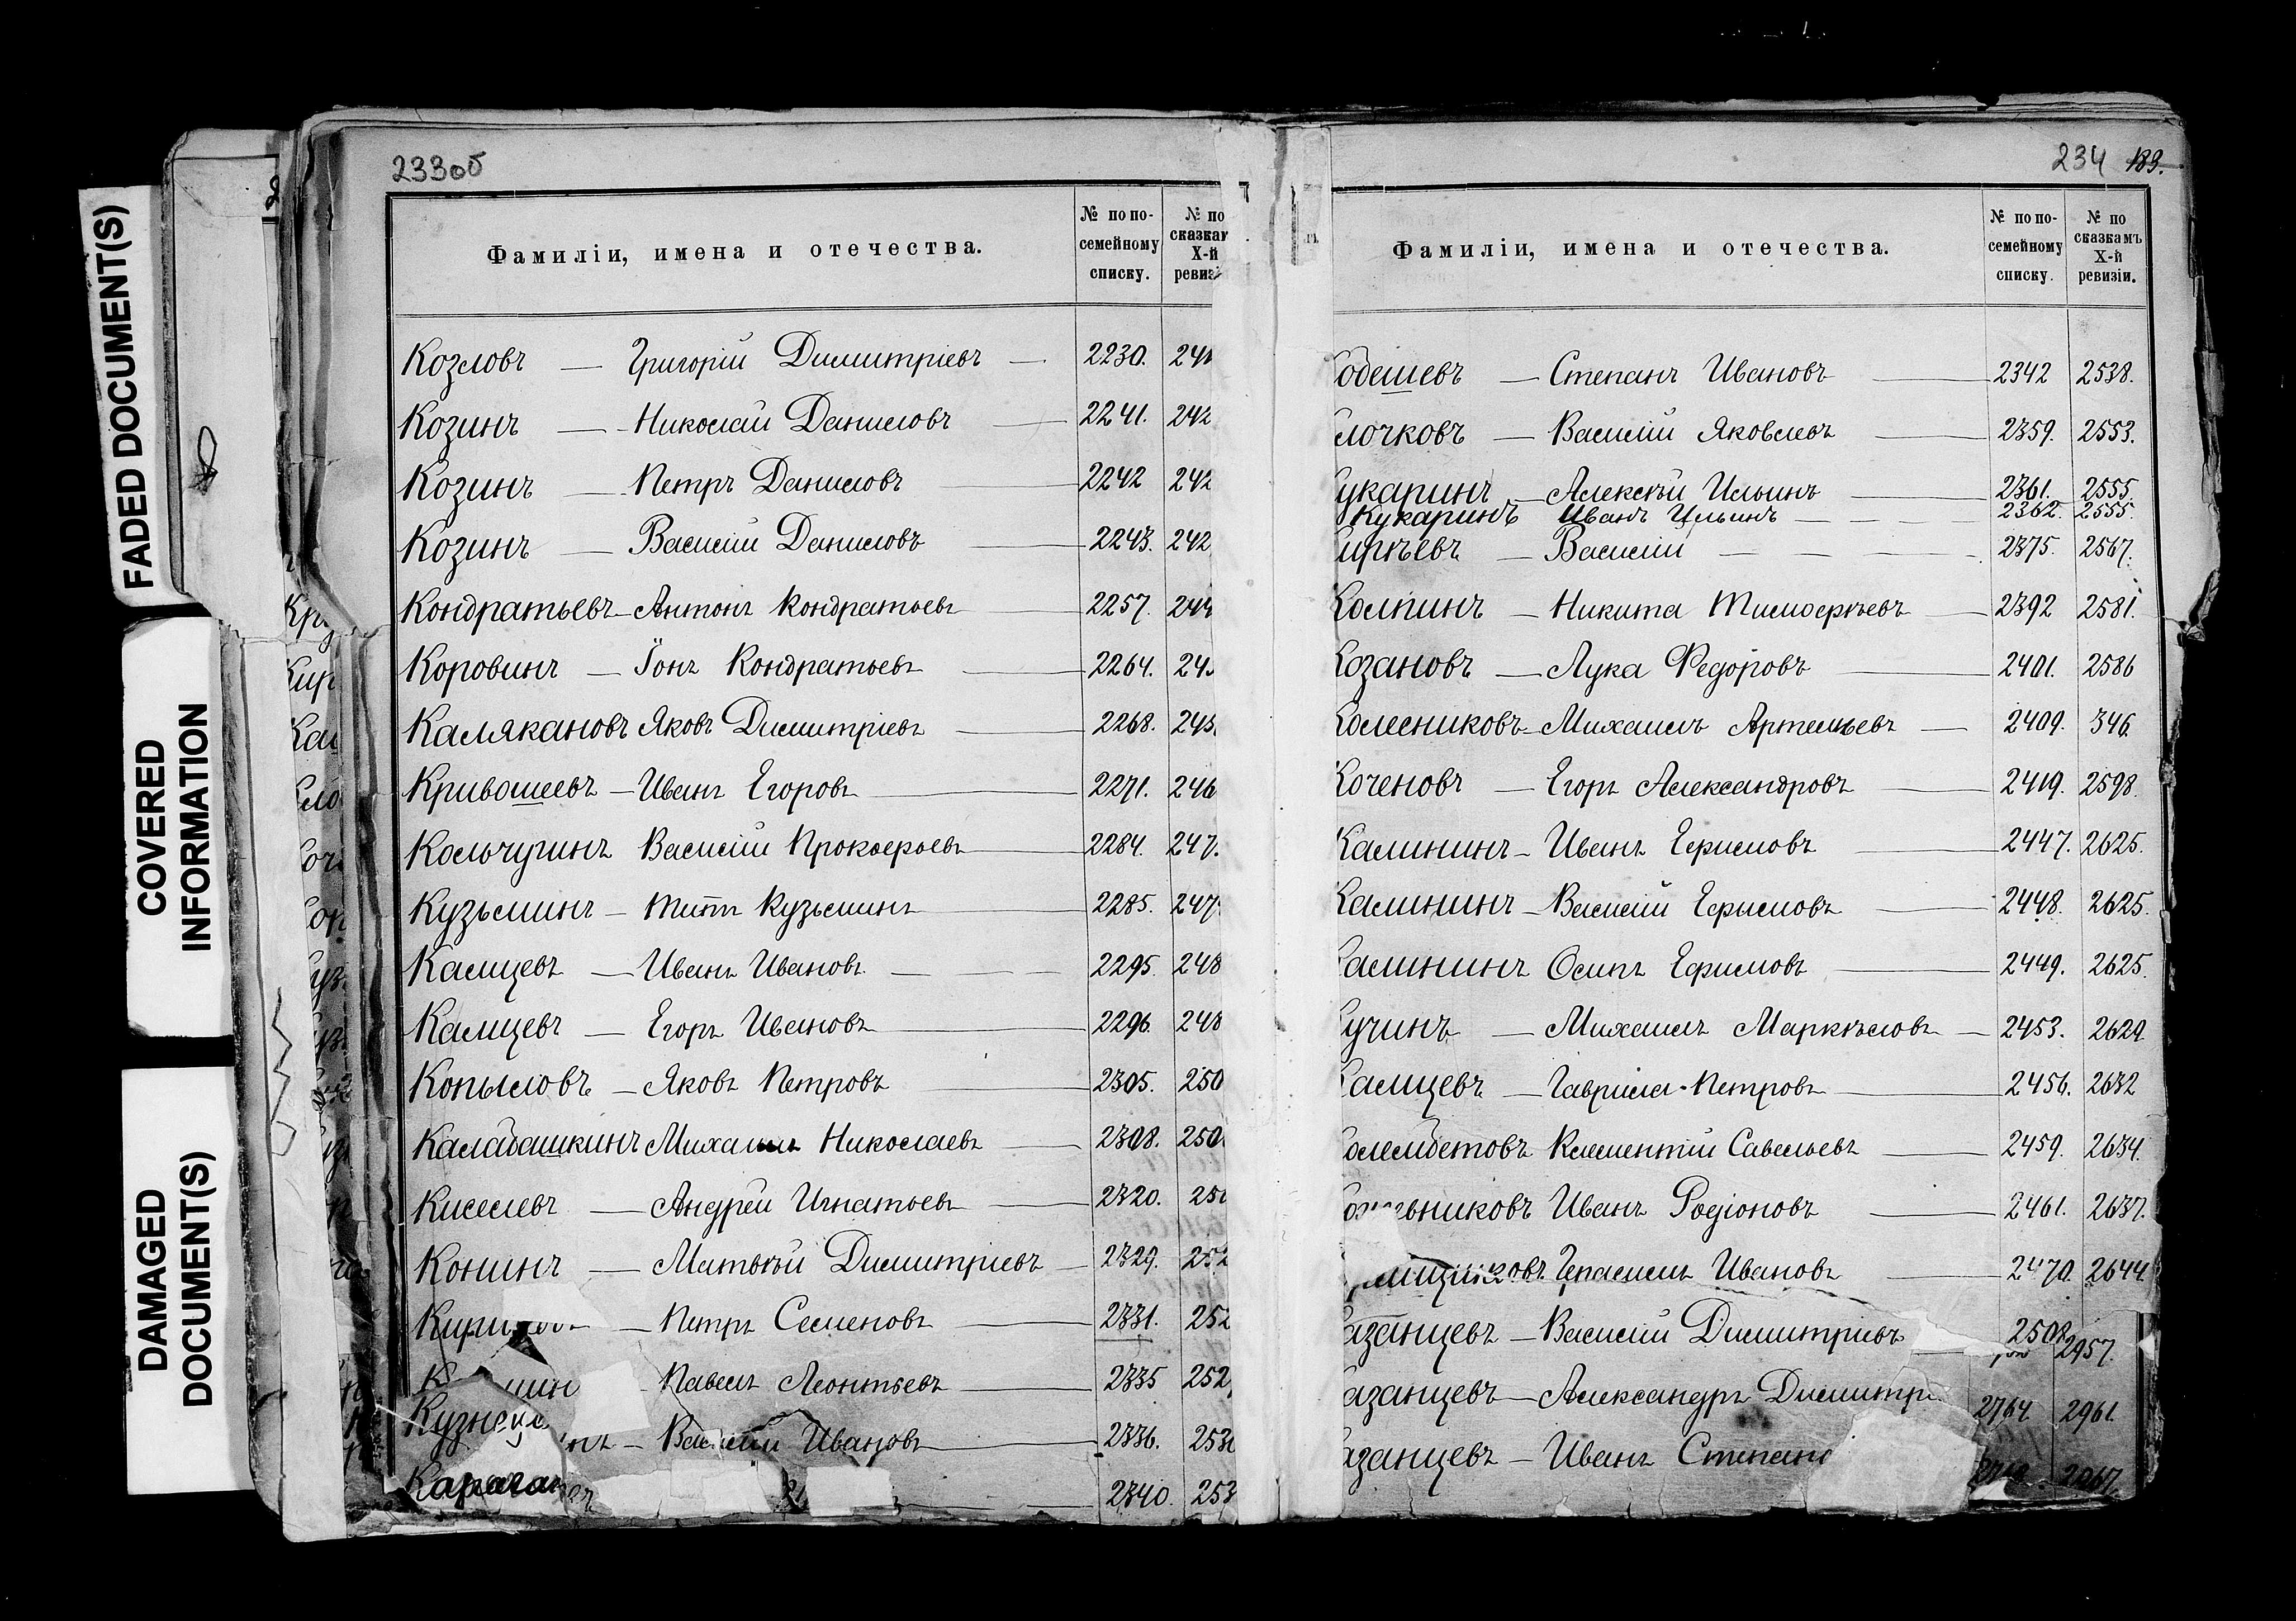 FADED DOCUMENT(S)
COVERED
INFORMATION
DAMAGED
DOCUMENT(S)
233об
Фамиліи, имена и отечества.
№ по по-
семейному
списку.
№ по
сказкам
Х-й
ревизі
Козловъ — Григорій Димитріевъ — 2230. 24
Козинъ — Николай Даниловъ — 2241. 242
Козинъ — Петръ Даниловъ — 2242 242
Козинъ — Василій Даниловъ — 2243. 242
Кондратьевъ — Антонъ Кондратьевъ 2257. 244
Коровинъ — Іонъ Кондратьевъ — 2264. 24
Каляkановъ Яковъ Димитріевъ — 2268. 245
Кривошеевъ — Иванъ Егоровъ — 2271. 246
Кольчугинъ Василій Прокофьевъ — 2284. 247.
Кузьминъ — Титъ Кузьминъ — 2285. 247
Камцевъ — Иванъ Ивановъ — 2295. 248
Камцевъ — Егоръ Ивановъ — 2296. 248
Копыловъ — Яковъ Петровъ — 2305. 250
Калабашкинъ Михаилъ Николаевъ — 2308. 250
Киселевъ — Андрей Игнатьевъ — 2320. 25
Конинъ — Матвѣй Димитріевъ — 2329. 252
Петръ Семеновъ — 2331. 252
Павелъ Леонтьевъ — 2335 252
Василій Ивановъ — 2336. 253
2340. 253
234 183.
Фамиліи, имена и отечества.
№ по по-
семейному
списку.
№ по
сказкамъ
Х-й
ревизіи.
одешевъ — Степанъ Ивановъ — 2342 2538.
лочковъ — Василій Яковлевъ — 2359. 2553.
укаринъ — Алексѣй Ильинъ — 2361. 2555.
Кукаринъ Иванъ Ильинъ — 2362. 2555.
ирѣевъ — Василій — 2375. 2567.
Колпинъ — Никита Тимофѣевъ — 2392 2581.
Козановъ — Лука Федоровъ — 2401. 2586
Колесниковъ — Михаилъ Артемьевъ — 2409. 346.
Коченовъ — Егоръ Александровъ — 2419. 2598.
Калининъ — Иванъ Ефимовъ — 2447. 2625.
Калининъ — Василій Ефимовъ — 2448. 2625.
Калининъ Осипъ Ефимовъ — 2449. 2625.
учинъ — Михаилъ Маркѣловъ — 2453. 2629
Камцевъ — Гавріилъ Петровъ — 2456. 2632
олембетовъ Климентій Савельевъ — 2459. 2634.
ьниковъ Иванъ Родіоновъ — 2461. 2637.
Герасимъ Ивановъ — 2470. 2644
азанцевъ — Василій Димитріевъ 2957.
азанцевъ — Александръ Димитрі 2764. 2961.
азанцевъ — Иванъ Степано